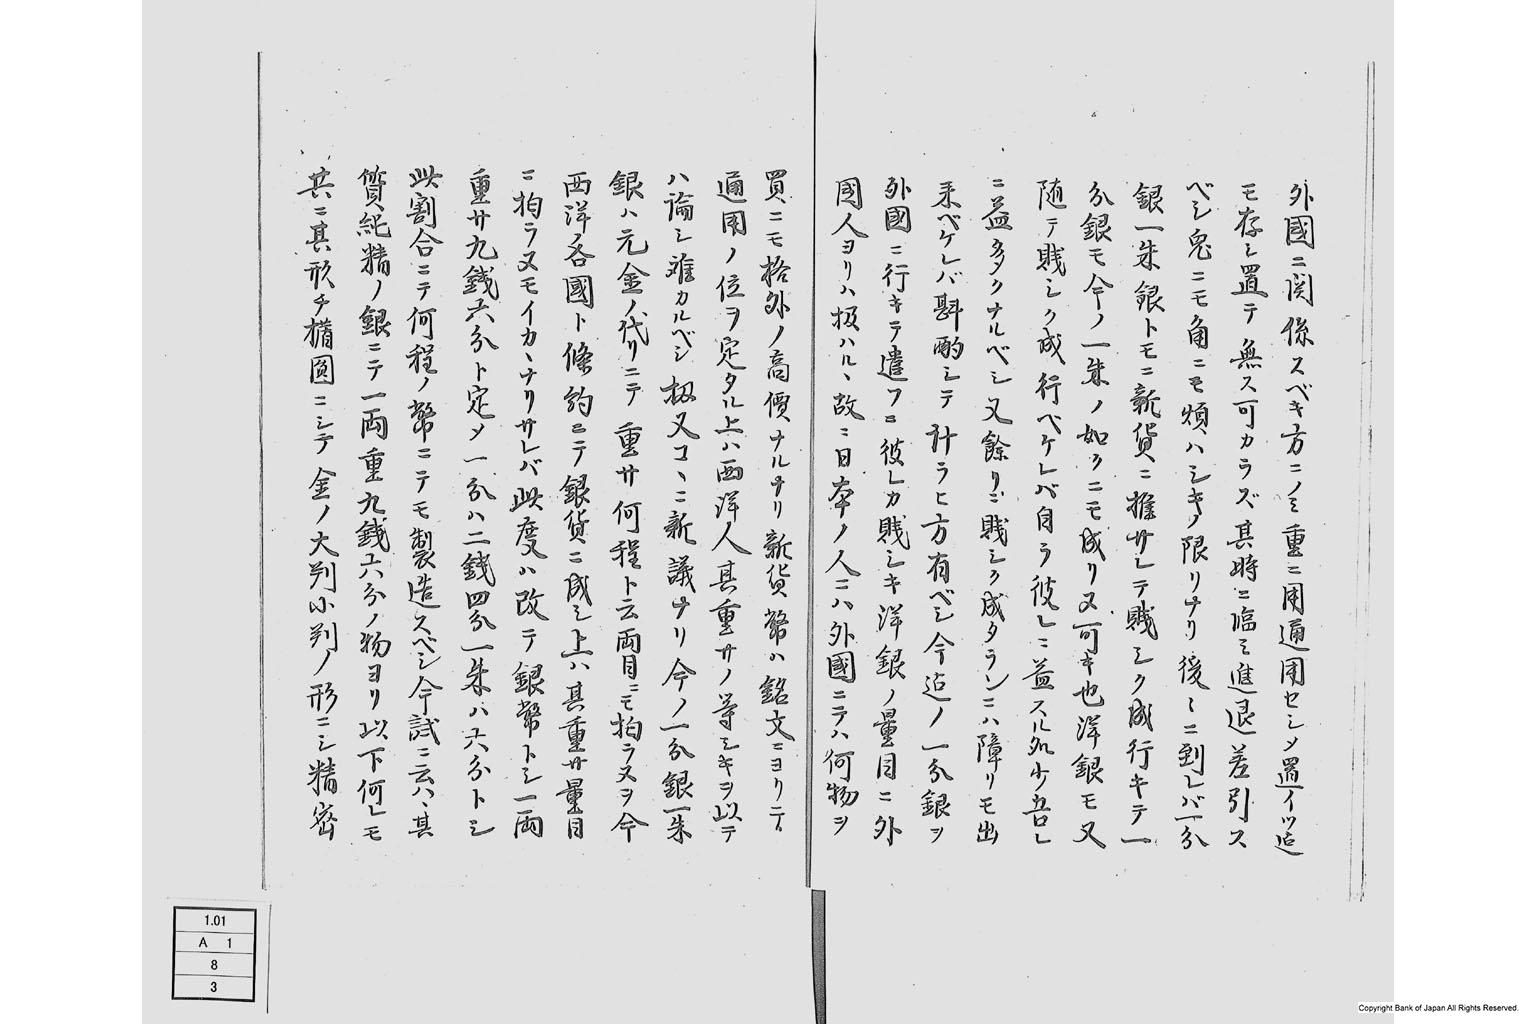 外國ニ関係スベキ方ニノミ重ニ用通用セシメ置イツ迠
モ存シ置テ無ス可カラズ其時ニ臨ミ進退差引ス
ベシ兎ニモ角ニモ煩ハシキノ限リナリ後〻ニ到レバ一分
銀一朱銀トモニ新貨ニ推サレテ賤シク成行キテ一
分銀モ今ノ一朱ノ如クニモ成リ又可キ也洋銀モ又
随テ賤シク成行ベケレバ自ラ彼レニ益スル処少吾レ
ニ益多クナルベシ又餘リニ賤シク成タランニハ障リモ出
来ベケレバ斟酌シテ計ラヒ方有ベシ今迠ノ一分銀ヲ
外國ニ行キテ遣フニ彼レカ賤シキ洋銀ノ量目ニ外
國人ヨリハ扱ハルヽ故ニ日夲ノ人ニハ外國ニテハ何物ヲ
買ニモ格外ノ高價ナルナリ新貨幣ハ銘文ニヨリテ
通用ノ位ヲ定タル上ハ西洋人其重サノ等シキヲ以テ
ハ論シ難カルベシ扨又コヽニ新議ナリ今ノ一分銀一朱
銀ハ元金ノ代リニテ重サ何程ト云両目ニモ拘ラヌヲ今
西洋各國ト條約ニテ銀貨ニ成シ上ハ其重サ量目
ニ拘ラヌモイカヽナリサレバ此度ハ改テ銀幣トシ一両
重サ九銭六分ト定メ一分ハ二銭四分一朱ハ六分トシ
此割合ニテ何程ノ幣ニテモ製造スベシ今試ニ云ハヽ其
質純精ノ銀ニテ一両重九銭六分ノ物ヨリ以下何レモ
共ニ其形チ橢圓ニシテ金ノ大判小判ノ形ニシ精密
1.01
A 1
8
3
Copyright Bank of Japan All Rights Reserved.